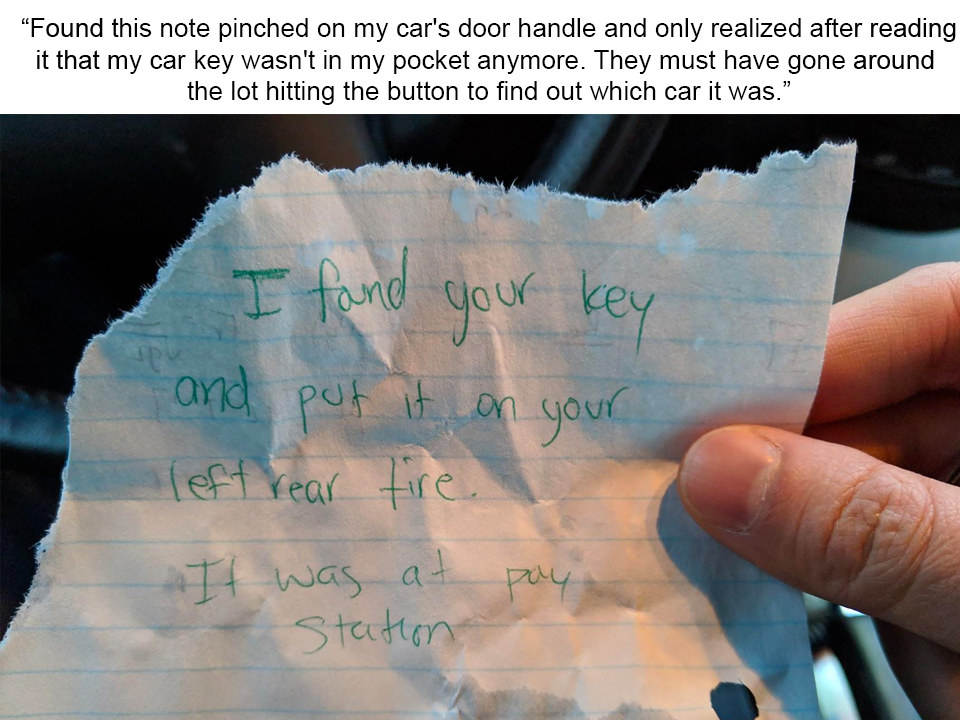 “Found this note pinched on my car's door handle and only realized after reading
it that my car key wasn't in my pocket anymore. They must have gone around
the lot hitting the button to find out which car it was.”
I fand your key
and put it on your
left rear tire.
It was at pay
station